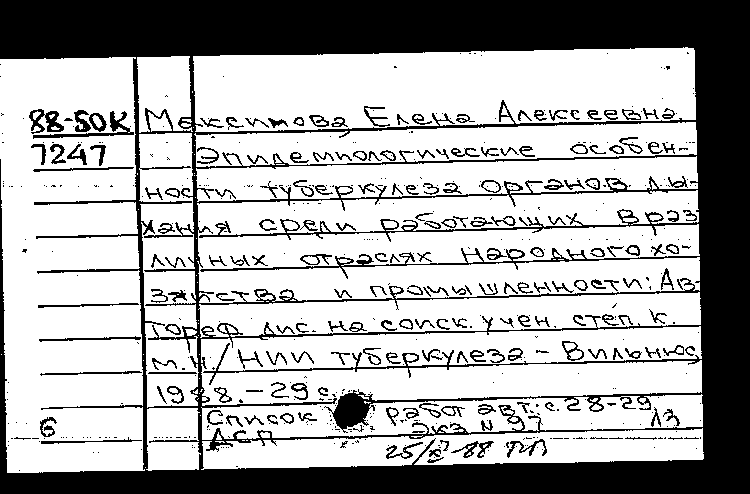 88-50К Максимова Елена Алексеевна
7247 Эпидемиологические особен-
ности туберкулеза органов ды-
хания среди работающих в раз
личных отраслях народного хо-
зяйства и промышленности: Ав-
тореф. дис. на соиск. учен. степ. к.
м.н/НИИ туберкулеза - Вильнюс
1988. - 29 с
Список работ авт.: с. 28-29
6 ДСП Экз N 97